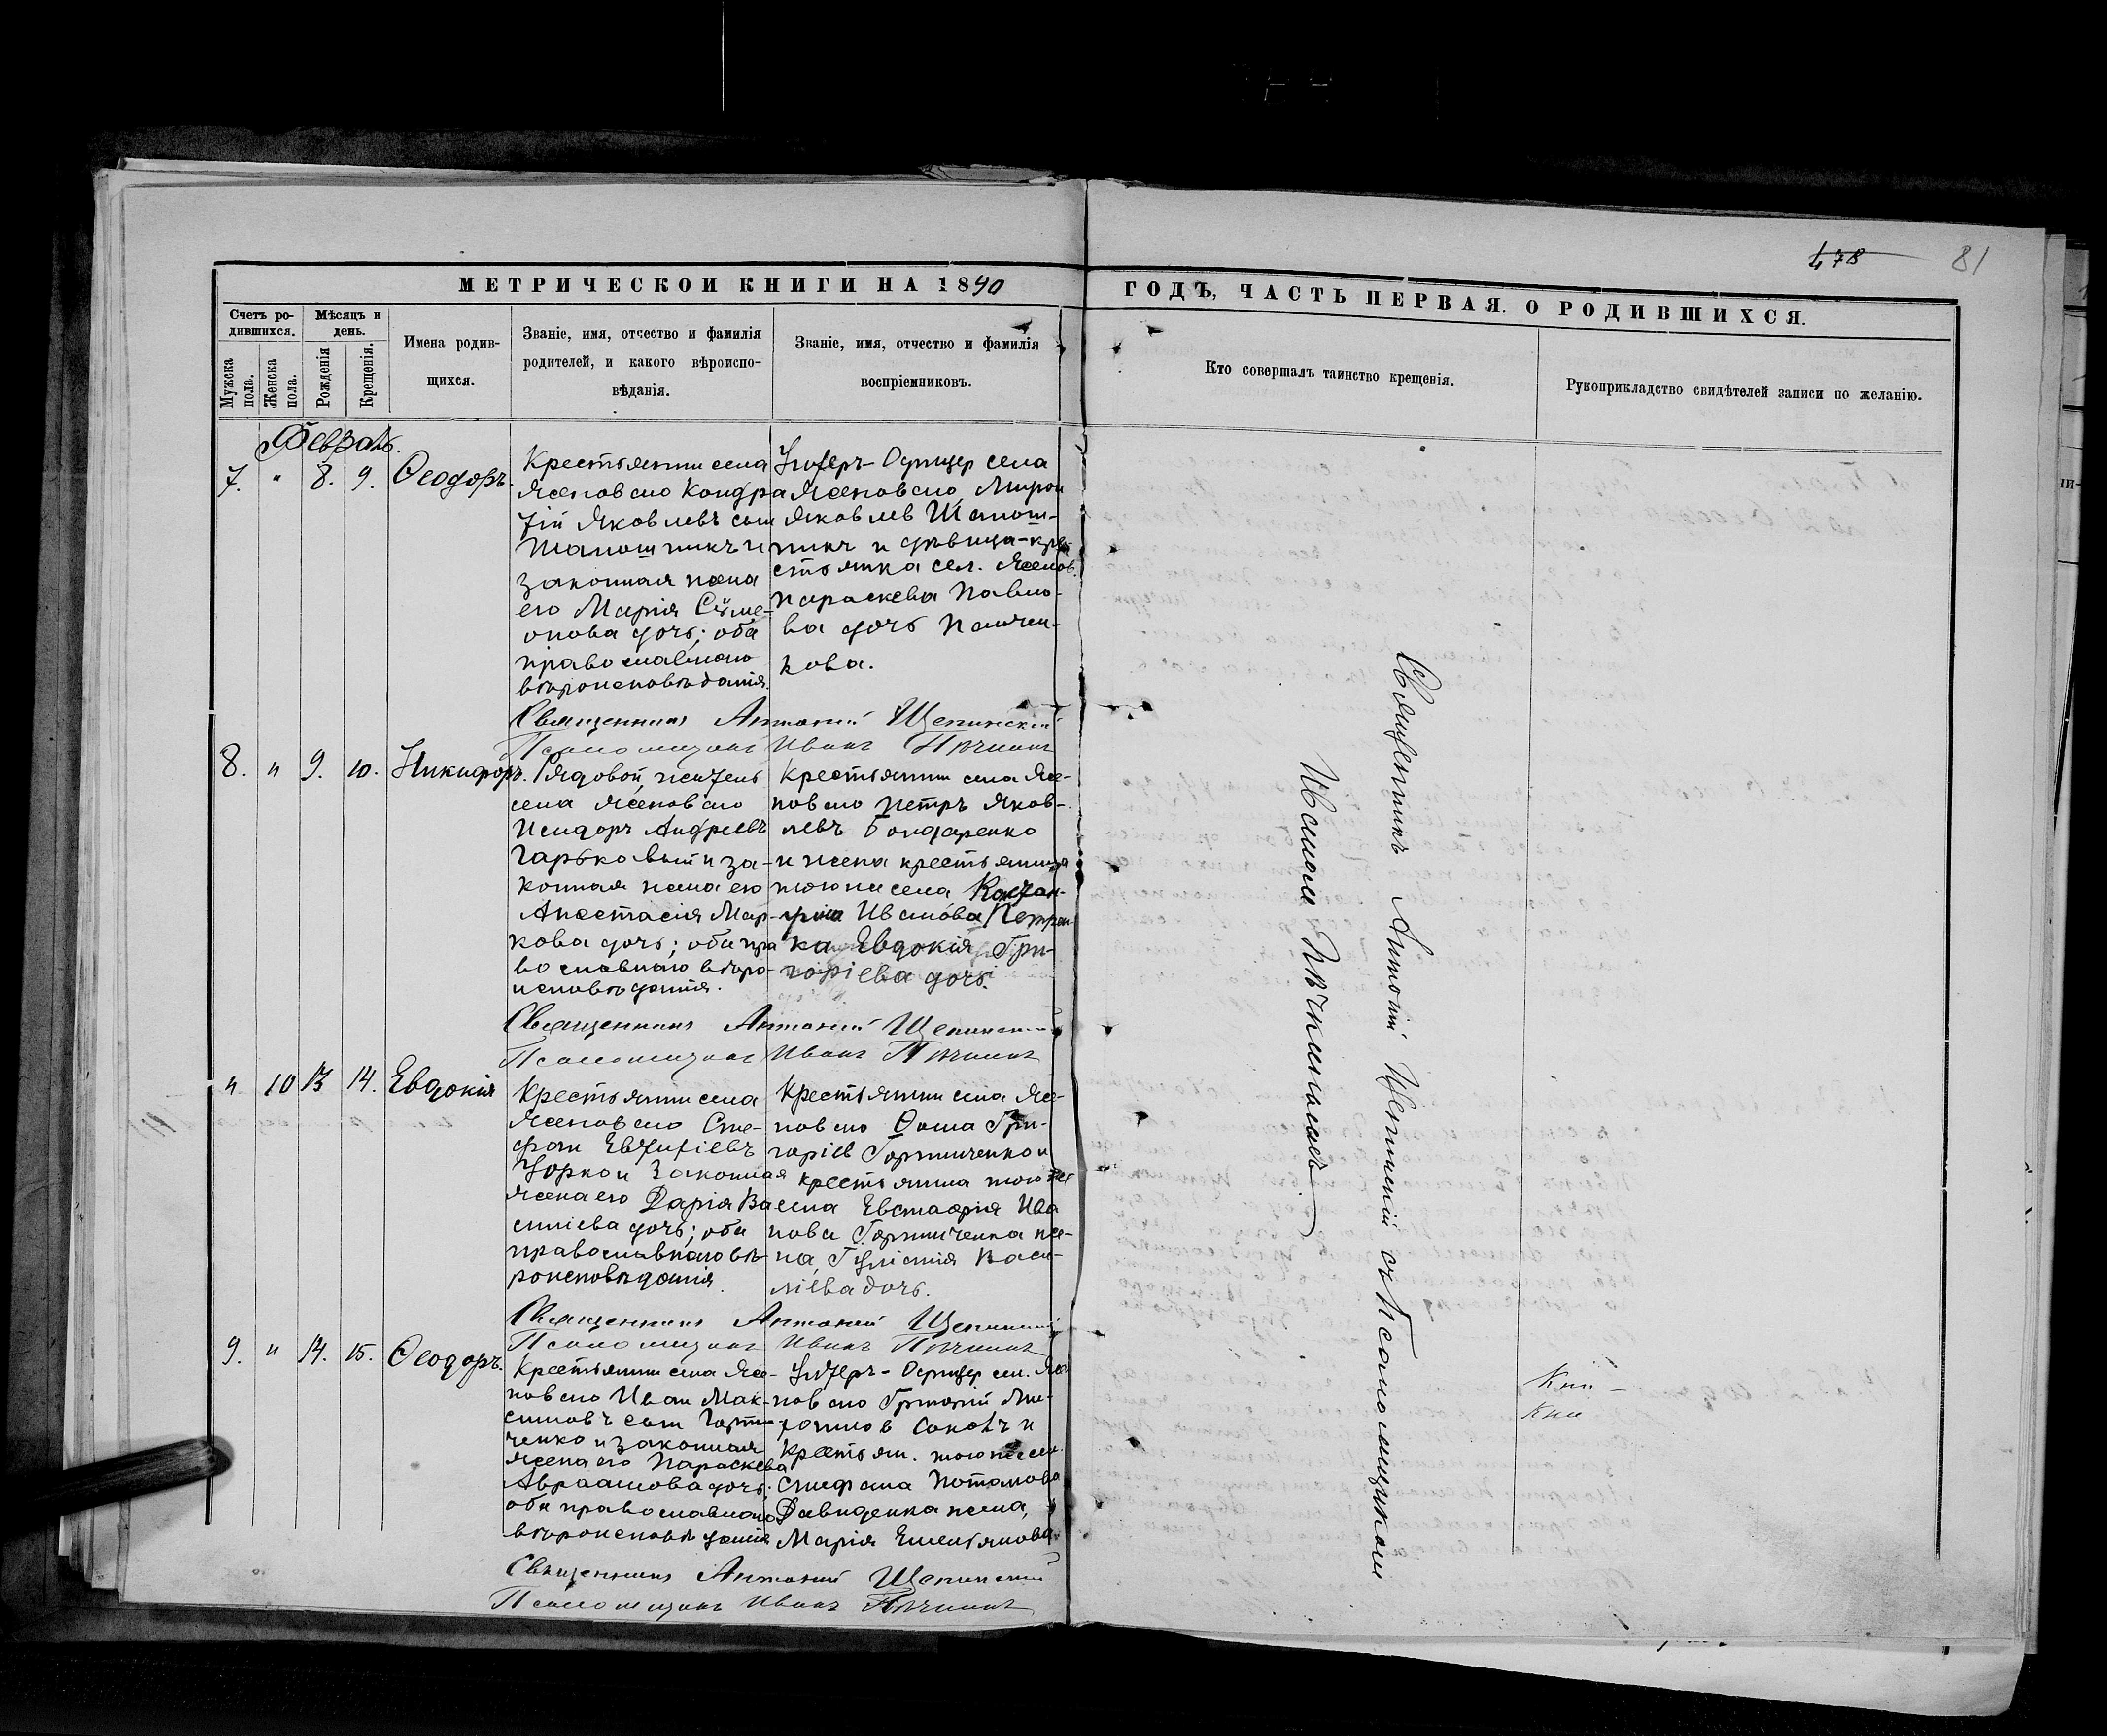 478 81
МЕТРИЧЕСКОИ КНИГИ НА 1890
ГОДЪ, ЧАСТЬ ПЕРВАЯ. О РОДИВШИХСЯ.
Счетъ ро-
дившихся.
Мѣсяцъ и
день.
Мужска
пола.
Женска
пола.
Рожденія
Крещенія.
Имена родив-
щихся.
Званіе, имя, отчество и фамилія
родителей, и какого вѣроиспо-
вѣданія.
Званіе, имя, отчество и фамилія
воспріемниковъ.
Кто совершалъ таинство крещенія.
Рукоприкладство свидѣтелей записи по желанію.
Февраль.
7. " 8. 9. Ѳеодоръ.
Крестьянин села
Ясеновскаго Кондра
тій Яковлевъ сын
и
законная жена
его Марія Сѵме-
онова дочь; оба
православнаго
вѣроисповѣданія.
Унтеръ-Офицер села
Ясеновскаго, Мирон
Яковлев
и дѣвица-кре-
стьянка сел. Ясенов.
Параскева Павло-
ва дочь
кова.
Священникъ Антоній Щепинскій
Псаломщикъ Иванъ Пѣчкинъ
8. " 9. 10. Никифоръ.
Рядовой, житель
села Ясеновскаго
Исидоръ Андреевъ
Гарьковый и за-
конная жена его
Анастасія Мар-
кова дочь; оба пра
вославнаго вѣро-
исповѣданія.
Крестьянин села Ясе-
новскаго Петръ Яков-
левъ Бондаренко
и жена крестьянина
тогоже села
Иванова Петрен-
ка Евдокія Гри-
горіева дочь.
Священникъ Антоній Щепинскій
Псаломщикъ Иванъ Пѣчкинъ
" 10 13 14. Евдокія
Крестьянин села
Ясеновскаго Сте-
фан Евѳиміевъ
и законная
жена его Дарія Ва
силіева дочь; оба
православнаго вѣ-
роисповѣданія.
Крестьянин села Ясе-
новскаго Ѳома Гри-
горіев Горпинченко и
крестьянина тогоже
села Евстафія Ива
нова Горпиченка же-
на, Гликерія Васи-
ліева дочь.
Священникъ Антоній Щепинскій
Псаломщикъ Иванъ Пѣчкинъ
9. " 14. 15. Ѳеодоръ.
Крестьянин села Ясе-
новскаго Иван Мак-
симовъ сын Горпи-
ченко и законная
жена его Параскева
Авраамова дочь;
оба православнаго
вѣроисповѣданія
Унтеръ-Офицер сел. Ясе
новскаго Григорій
и
Крестьян. тогоже сел.
Стефана Потапова
Давиденка жена,
Марія Емельянова.
Священникъ Антоній Щепинскій
Псаломщикъ Иванъ Пѣчкинъ
Священникъ Антоній Щепинскій съ Псаломщикомъ
Иваномъ Пѣчкинымъ.